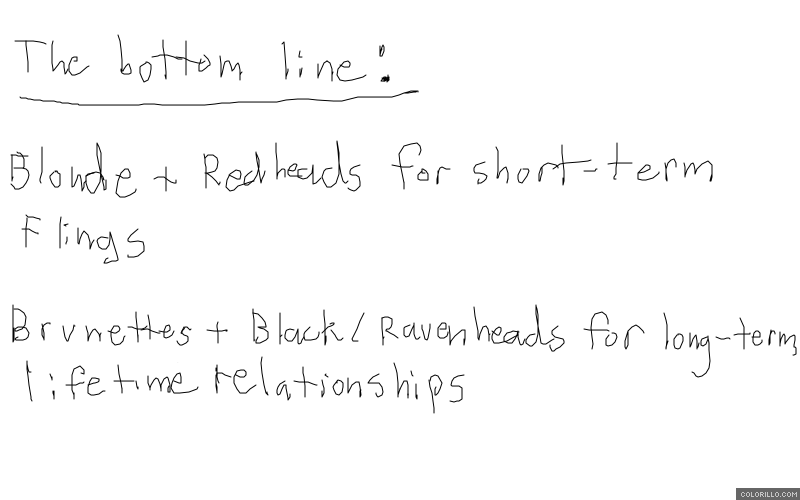 The bottom line:
Blonde + Redheads for short-term
Flings
Brunettes + Black/Ravenheads for long-term,
lifetime relationships
COLORILLO.COM